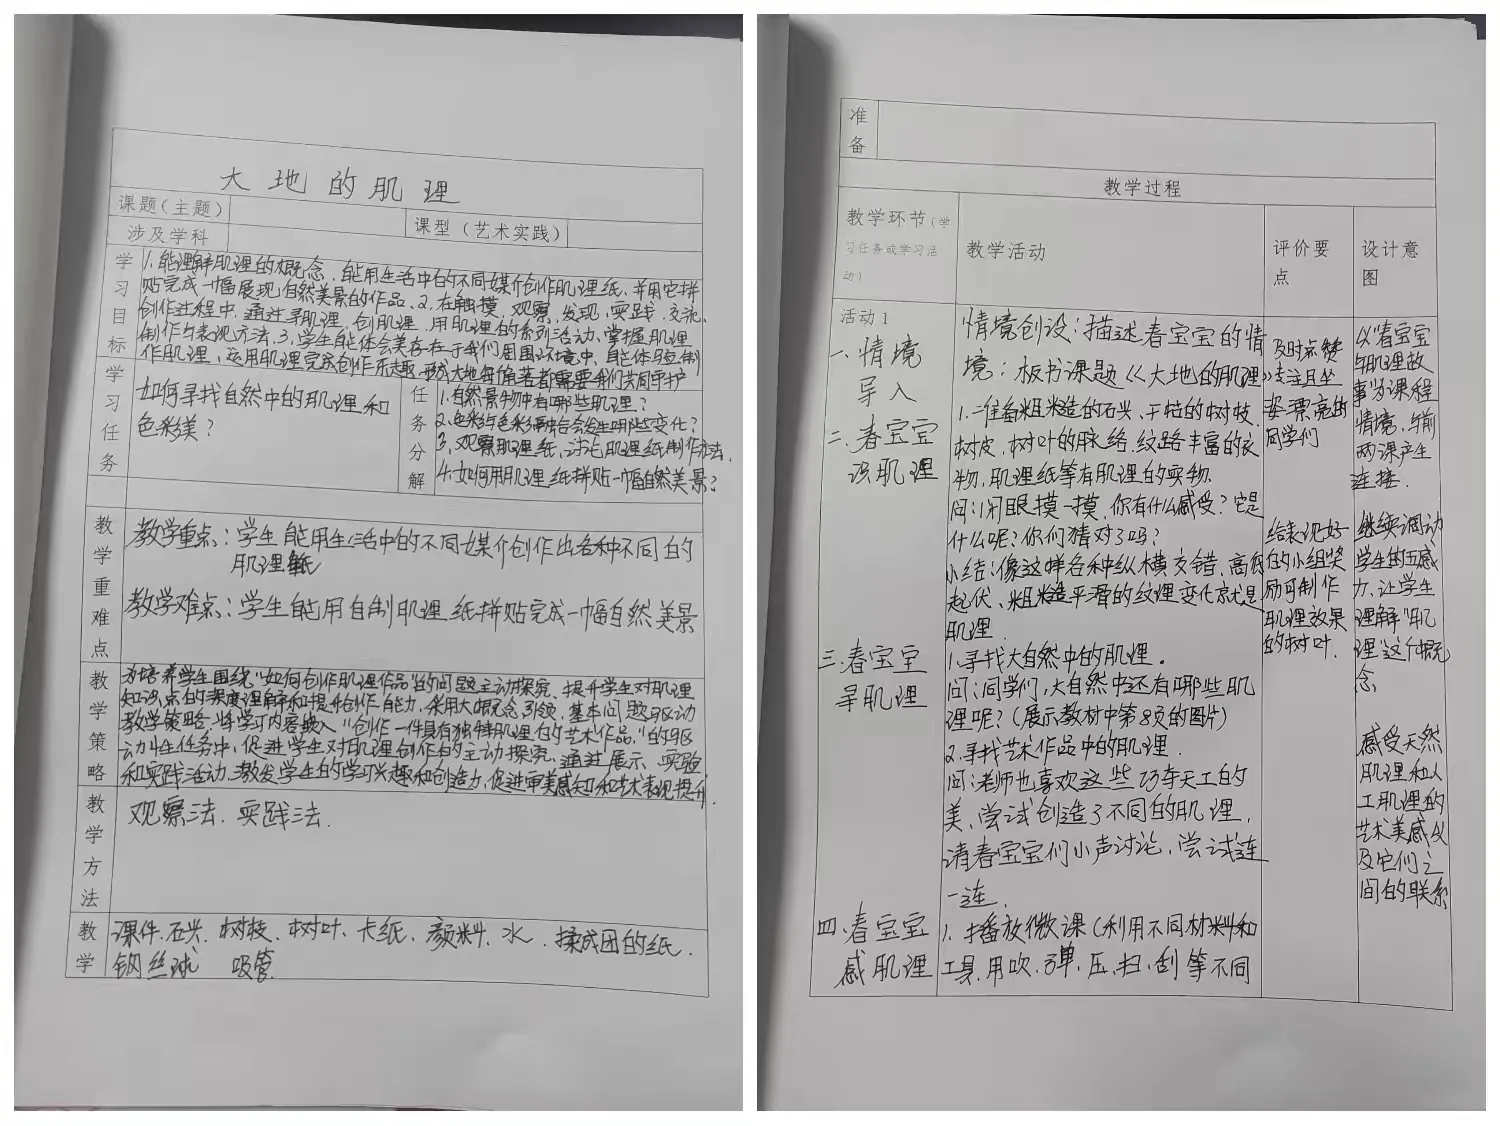 大地的肌理
课题(主题)
课型(艺术实践)
涉及学科
学习目标
1.能理解肌理的概念.能用生活中的不同媒介创作肌理纸,并用它拼
贴完成一幅展现自然美景的作品.2.在触摸,观察,发现,实践,交流,
创作过程中,通过寻肌理,创肌理,用肌理的系列活动,掌握肌理
制作与表现方法.3.学生能体会美存在于我们周围环境中,能体验制
作肌理,运用肌理完成创作乐趣
大地每个角落都需要我们共同守护
学习任务
如何寻找自然中的肌理和
色彩美?
任务分解
1.自然景物中有哪些肌理?
2.色彩与色彩融合会发生哪些变化?
3.观察肌理纸,讨论肌理纸制作方法.
4.如何用肌理纸拼贴一幅自然美景?
教学重难点
教学重点:学生能用生活中的不同媒介创作出各种不同的
肌理纸
教学难点:学生能用自制肌理纸拼贴完成一幅自然美景
教学策略
为培养学生围绕“如何创作肌理作品”的问题主动探究,提升学生对肌理
知识点的深度理解和提升创作能力,采用大概念引领,基本问题驱动
教学策略.将学习内容嵌入“创作一件具有独特肌理的艺术作品”的驱
动性任务中,促进学生对肌理创作的主动探究.通过展示、实验
和实践活动,激发学生的学习兴趣和创造力,促进审美感知和艺术表现提升.
教学方法
观察法.实践法.
教学
课件.石头.树枝、树叶、卡纸、颜料、水、揉成团的纸.
钢丝球 吸管
准备
教学过程
教学环节(学
习任务或学习活
动)
教学活动
评价要
点
设计意
图
活动1
一、情境
导入
情境创设:描述春宝宝的情
境:板书课题《大地的肌理》
及时点赞
专注且坐
姿漂亮的
同学们
以“春宝宝
与肌理故
事”为课程
情境,与前
两课产生
连接.
二、春宝宝
识肌理
1.准备粗糙的石头,干枯的树枝
树皮,树叶的脉络,纹路丰富的衣
物,肌理纸等有肌理的实物.
问:闭眼摸一摸,你有什么感受?它是
什么呢?你们猜对了吗?
小结:像这样各种纵横交错、高低
起伏、粗糙平滑的纹理变化就是
肌理.
给表现好
的小组奖
励可制作
肌理效果
的树叶.
继续调动
学生的五感
力,让学生
理解“肌
理”这个概
念
三、春宝宝
寻肌理
1.寻找大自然中的肌理.
问:同学们,大自然中还有哪些肌
理呢?(展示教材中第8页的图片)
2.寻找艺术作品中的肌理.
问:老师也喜欢这些巧夺天工的
美,尝试创造了不同的肌理,
请春宝宝们小声讨论,尝试连
一连.
感受天然
肌理和人
工肌理的
艺术美感以
及它们之
间的联系
四、春宝宝
感肌理
1.播放微课(利用不同材料和
工具,用吹、弹、压、扫、刮等不同